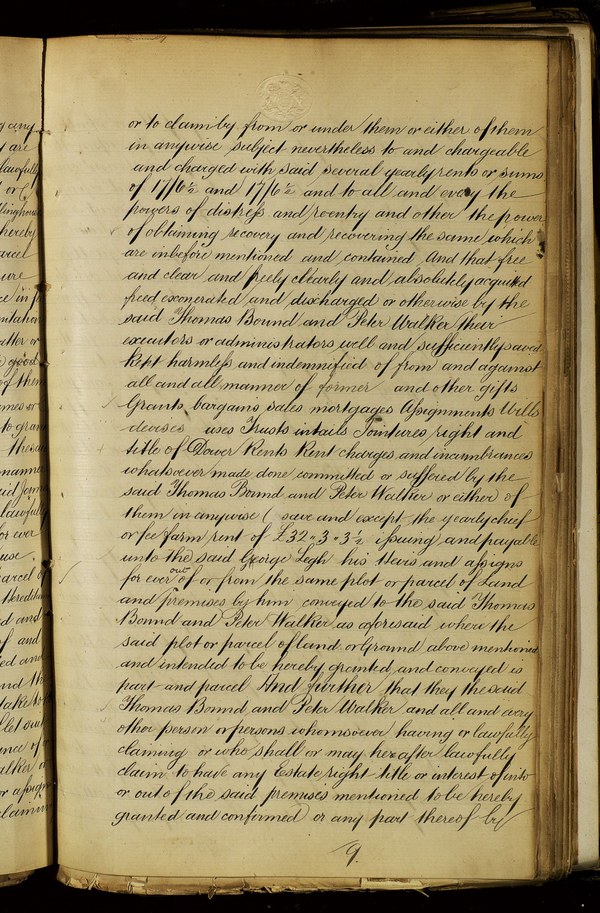 g any
y are
lawfully
hereby
arcel
ure
ce in
atter or
good
of them
mes or
to gran
these
manner
aid
lawfully
for ever
use
parcel of
Heredita
d and
of and
ed and
and th
take to
let out
nce of
alker
r assign
claimin
or to claim by from or under them or either of them
in anywise subject nevertheless to and chargeable
and charged with said several yearly rents or sums
of 17/6½ and 17/6½ and to all and every the
powers of distress and reentry and other the power
of obtaining recovery and recovering the same which
are inbefore mentioned and contained And that free
and clear and freely clearly and absolutely acquitted
freed exonerated and discharged or otherwise by the
said Thomas Bound and Peter Walker their
executors or administrators well and sufficiently saved
kept harmless and indemnified of from and against
all and all manner of former and other gifts
Grants bargains sales mortgages Assignments Wills
devises uses Trusts intails Jointures right and
title of Dower Rents Rent charges and incumbrances
whatsoever made done committed or suffered by the
said Thomas Bound and Peter Walker or either of
them in anywise ( save and except the yearly chief
or fee farm rent of £32 " 3 " 3½ issuing and payable
unto the said George Legh his Heirs and assigns
for ever out of or from the same plot or parcel of Land
and premises by him conveyed to the said Thomas
Bound and Peter Walker as aforesaid where the
said plot or parcel of land or Ground above mentioned
and intended to be hereby granted and conveyed is
part and parcel And further that they the said
Thomas Bound and Peter Walker and all and every
other person or persons whomsoever having or lawfully
claiming or who shall or may hereafter lawfully
claim to have any Estate right title or interest of into
or out of the said premises mentioned to be hereby
granted and confirmed or any part thereof by
9.